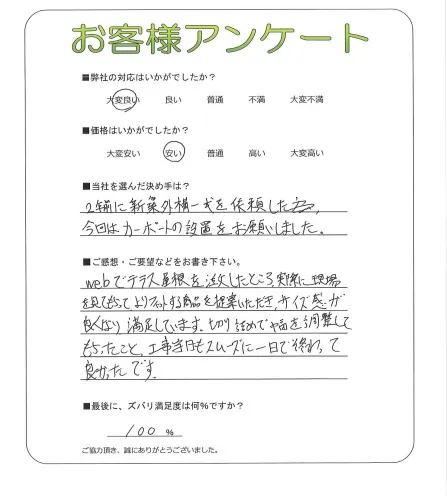 お客様アンケート
■弊社の対応はいかがでしたか?
大変良い 良い 普通 不満 大変不満
■価格はいかがでしたか?
大変安い 安い 普通 高い 大変高い
■当社を選んだ決め手は?
2年前に新築外構一式を依頼した為、
今回はカーポートの設置をお願いしました。
■ご感想・ご要望などをお書き下さい。
webでテラス屋根を注文したところ実際に現場
を見てもらってよりフィットする商品を提案いただき、サイズ感が
良くなり満足しています。切り詰めで幅を調整して
もらったこと、工事当日もスムーズに一日で終わって
良かったです。
■最後に、ズバリ満足度は何%ですか?
100 %
ご協力頂き、誠にありがとうございました。